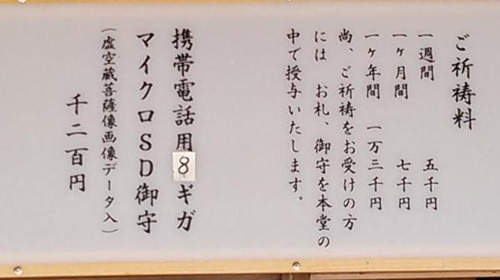 ご祈祷料
一週間　五千円
一ヶ月間　七千円
一ヶ年間　一万三千円
尚、ご祈祷をお受けの方
には　お札、御守を本堂の
中で授与いたします。
携帯電話用8ギガ
マイクロSD御守
（虚空蔵菩薩像画像データ入）
千二百円